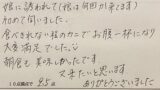 娘に誘われて(娘は何回か来てます)
初めて伺いました。
食べきれない程のカニでお腹一杯になり
大変満足でした。
朝食も美味しかったです
又来たいと思います
ありがとうございました
10点満点で 95点